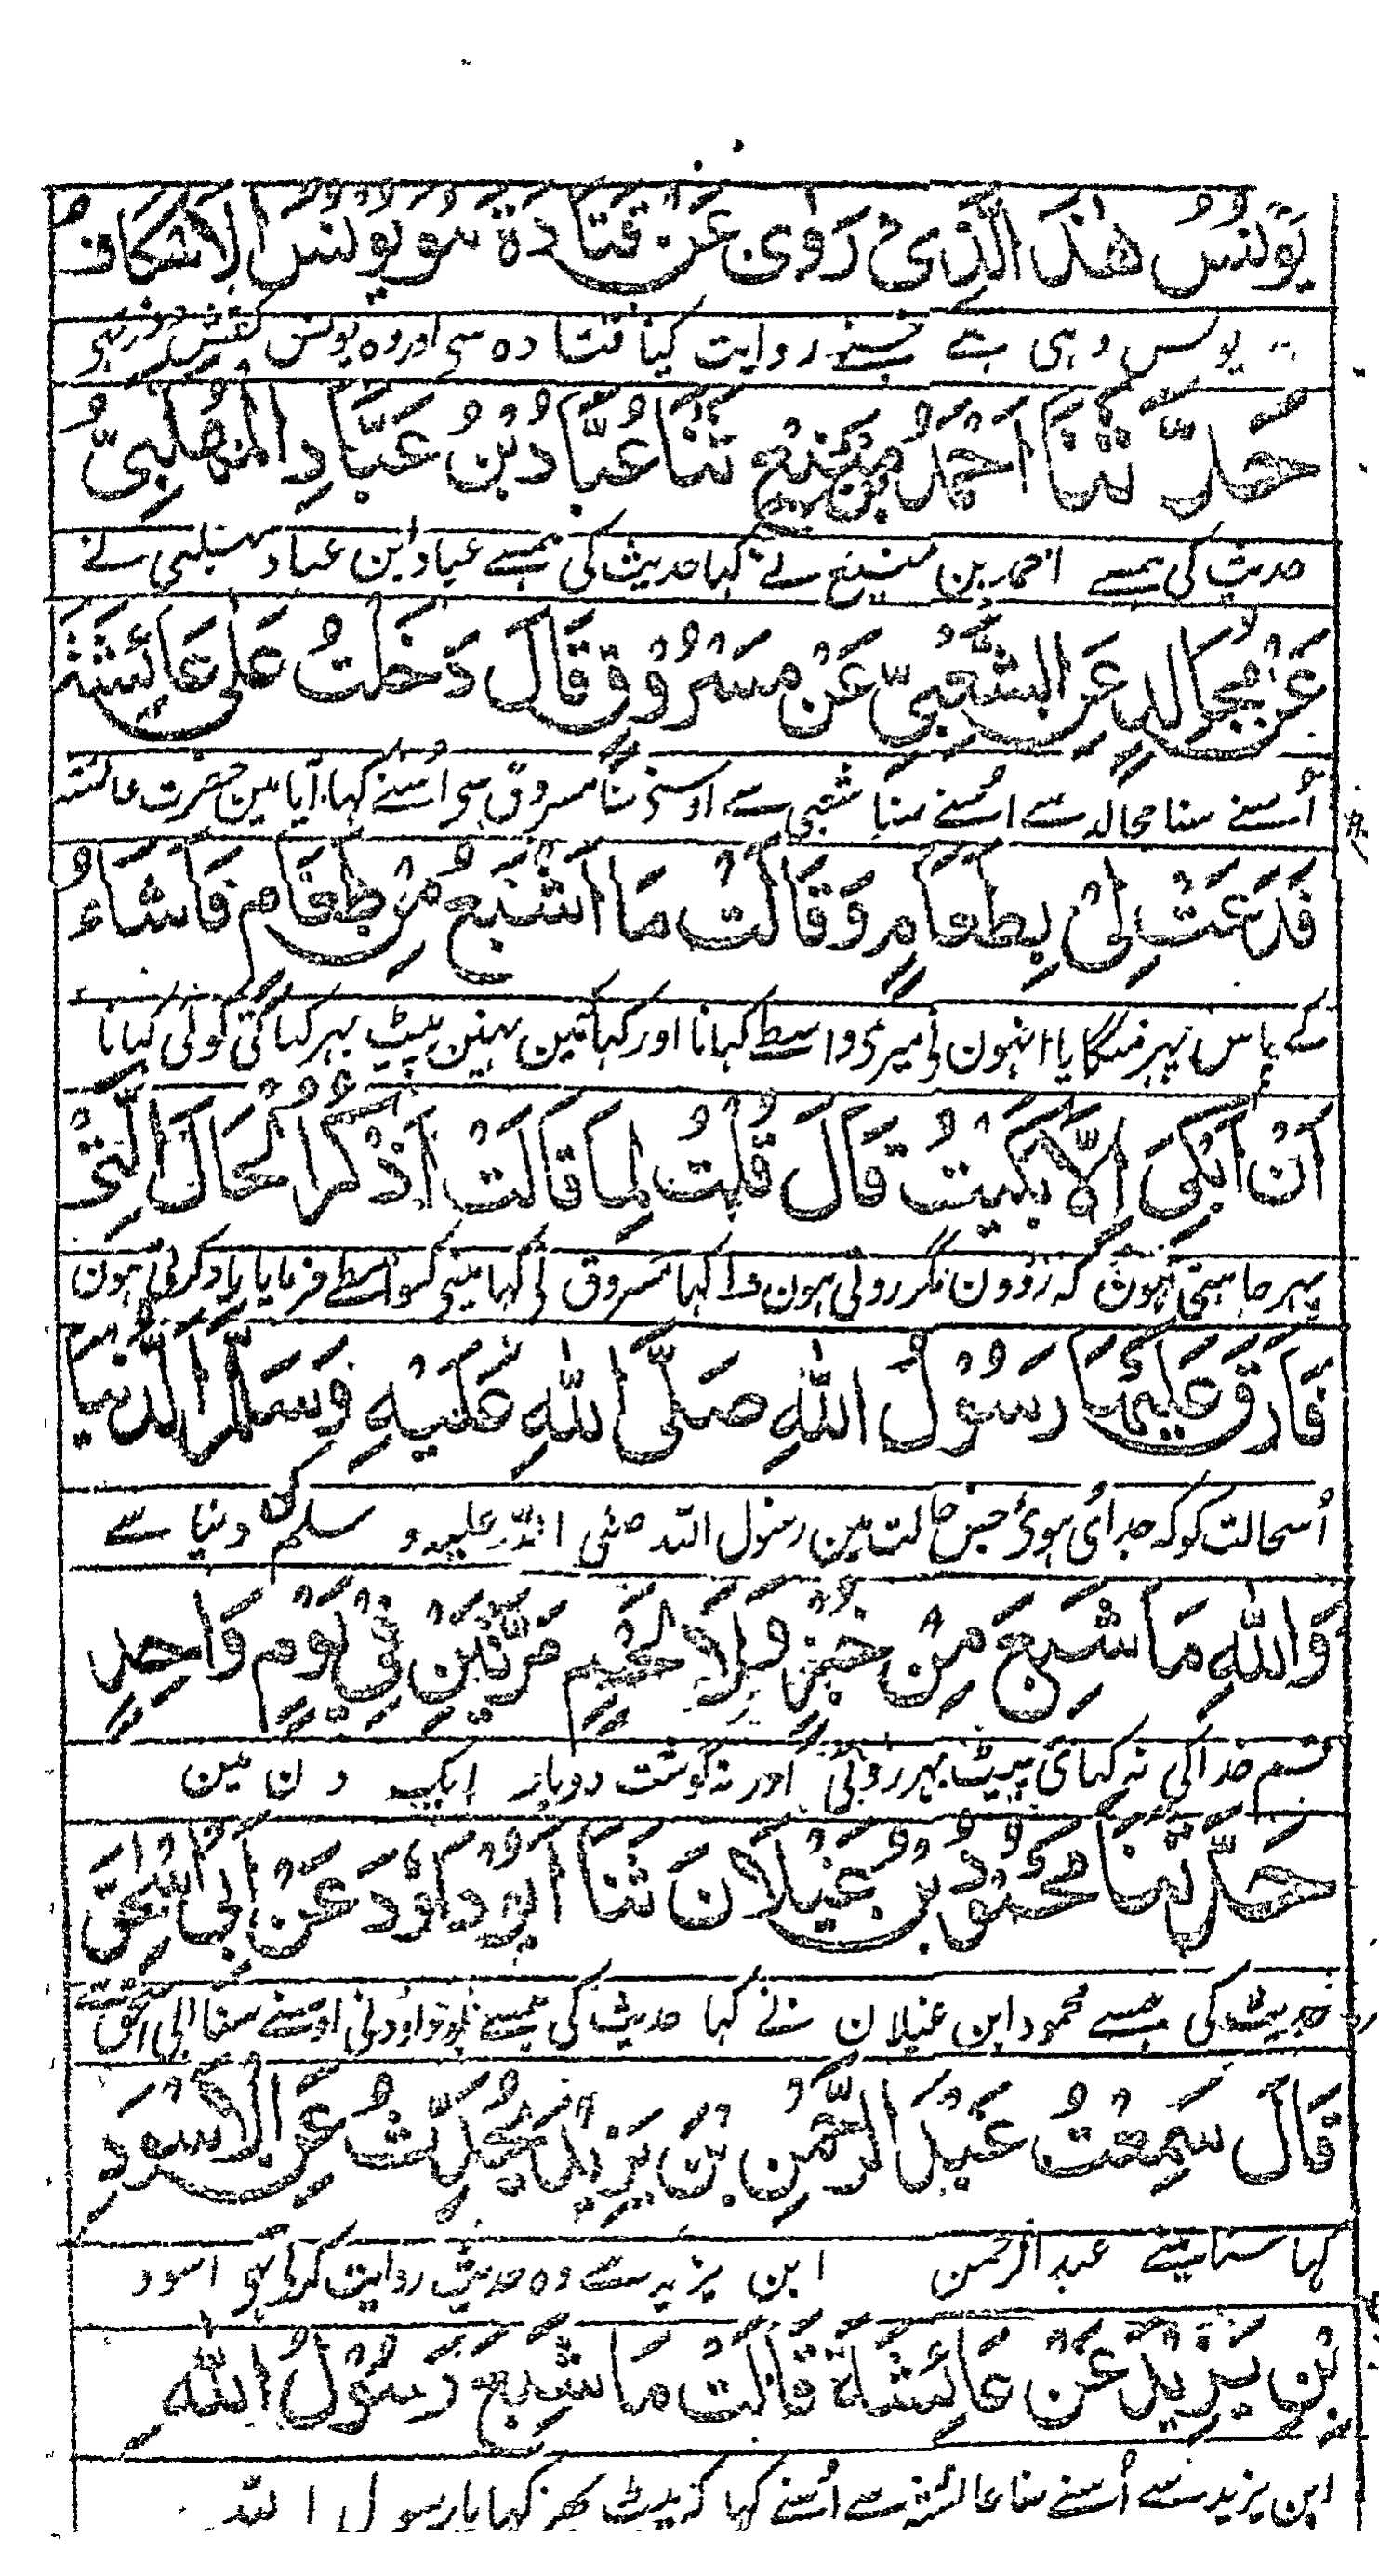 يُوْنُسُ هٰذَا الَّذِیْ رَوٰی عَنْ قَتَادَةَ هُوَ يُوْنُسُ الْاِسْكَافُ
یونس وہی ہے جسنے روایت کیا قتادہ سی اور وہ یونس کفش
حَدَّثَنَا اَحْمَدُ بْنُ مَنِيْعٍ ثَنَا عَبَّادُ بْنُ عَبَّادِ الْمُهَلَّبِیُّ
حدیث کی ہمسے احمد بن منیع نے کہا حدیث کی ہمسے عباد ابن عباد مہلبی نے
عَنْ مُجَالِدٍ عَنِ الشَّعْبِیِّ عَنْ مَسْرُوْقٍ قَالَ دَخَلْتُ عَلٰی عَائِشَةَ
اُسنے سنا مجالد سے اُسنے سنا شعبی سے اوسنی سنا مسروق سی اُسنے کہا آیا مین حضرت عائشہ
فَدَعَتْ لِیْ بِطَعَامٍ وَقَالَتْ مَا اَشْبَعُ مِنْ طَعَامٍ فَاَشَاءُ
کے پاس پہر منگایا انہون نی میری واسطے کہانا اور کہا مین نہین پیٹ بہر کہاتی کوئی کہانا
اَنْ اَبْكِیَ اِلَّا بَكَيْتُ قَالَ قُلْتُ لِمَا قَالَتْ اَذْكُرُ الْحَالَ الَّتِیْ
پہر چاہتی ہون کہ رووُن مگر روتی ہون کہا مسروق نی کہا مینی کسواسطے فرمایا یاد کرتی ہون
فَارَقَ عَلَيْهَا رَسُوْلُ اللهِ صَلَّی اللهُ عَلَيْهِ وَسَلَّمَ الدُّنْيَا
اُسحالت کو کہ جدائی ہوئی جس حالت مین رسول اللہ صلی اللہ علیہ و سلم کی دنیا سے
وَاللهِ مَا شَبِعَ مِنْ خُبْزٍ وَلَا لَحْمٍ مَرَّتَيْنِ فِیْ يَوْمٍ وَاحِدٍ
قسم خدا کی نہ کہائی پیٹ بہر روٹی اور نہ گوشت دوبار ایک دن مین
حَدَّثَنَا مَحْمُوْدُ بْنُ غَيْلَانَ ثَنَا اَبُوْ دَاوٗدَ عَنْ اَبِیْ اِسْحٰقَ
حدیث کی ہمسے محمود ابن غیلان نے کہا حدیث کی ہمسے ابو داود نی اوسنے سنا ابی اسحق سے
قَالَ سَمِعْتُ عَبْدَ الرَّحْمٰنِ بْنَ يَزِيْدَ يُحَدِّثُ عَنِ الْاَسْوَدِ
کہا سنا مینے عبد الرحمن ابن یزید سے وہ حدیث روایت کرتا ہی اسود
بْنِ يَزِيْدَ عَنْ عَائِشَةَ قَالَتْ مَا شَبِعَ رَسُوْلُ اللهِ
ابن یزید سے اُسنے سنا عائشہ سے اُسنے کہا نہ پیٹ بھر کہایا رسول اللہ